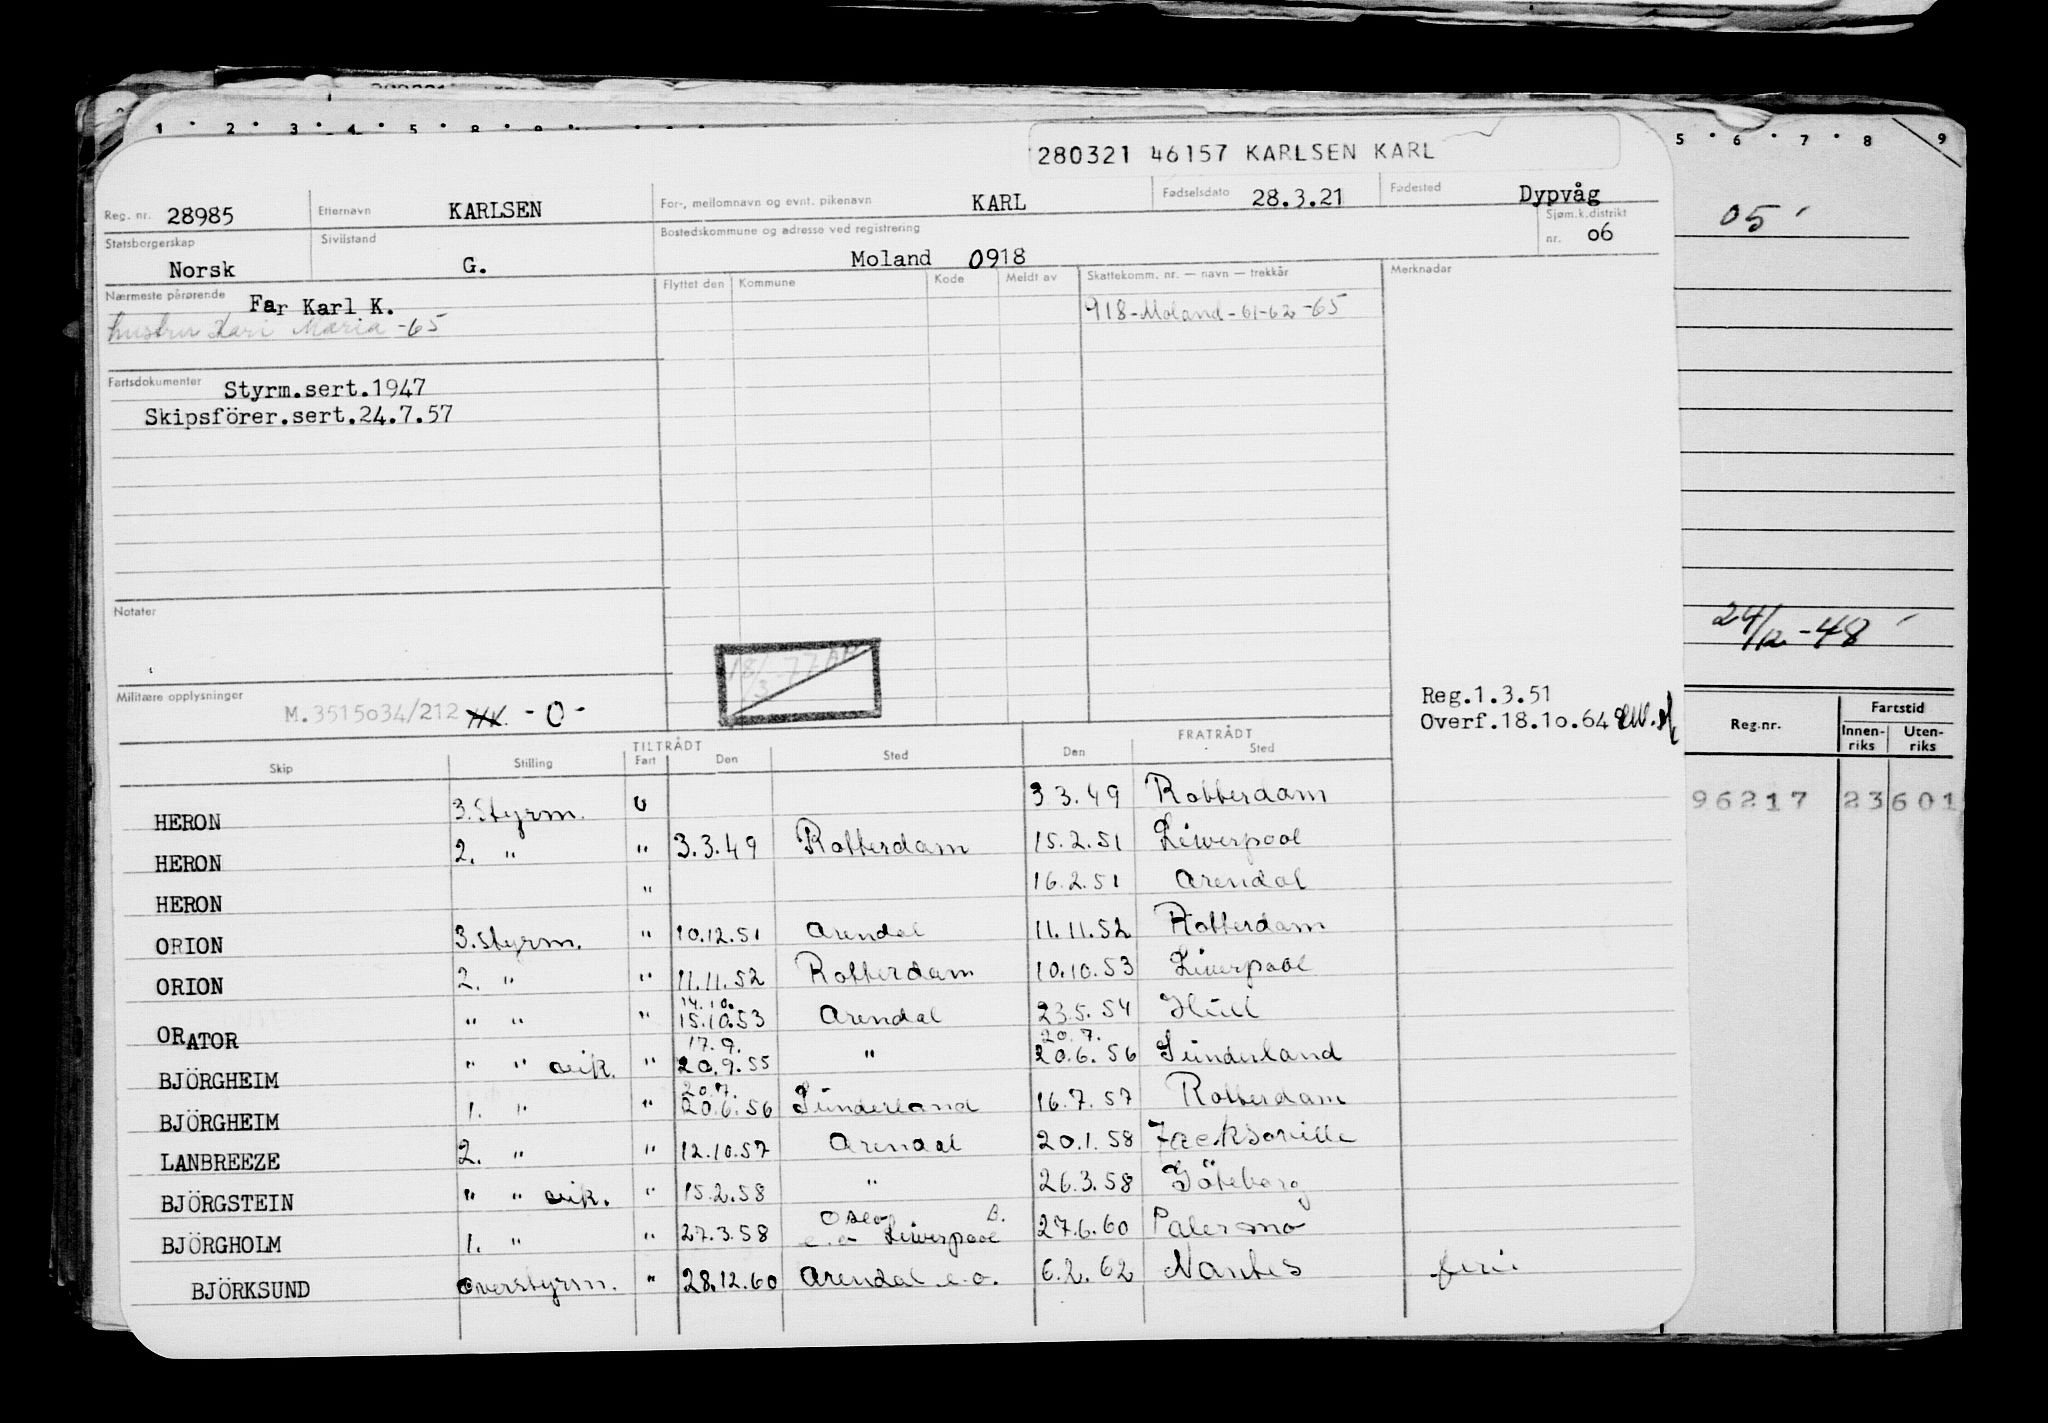 1 · 2 · 3 · 4 · 5 · 8 · 9
5 · 6 · 7 · 8 9
280321 46157 KARLSEN KARL
Reg. nr. 28985 Etternavn KARLSEN For-, mellomnavn og evnt. pikenavn KARL Fødselsdato 28.3.21 Fødested Dypvåg
Statsborgerskap Norsk Sivilstand G. Bostedskommune og adresse ved registrering Moland 0918 Sjøm.k.distrikt nr. 06
05
Nærmeste pårørende Far Karl K.
hustru Kari Maria -65
Flyttet den Kommune Kode Meldt av Skattekomm. nr. — navn — trekkår Merknader
918-Moland-61-62-65
Fartsdokumenter Styrm.sert.1947
Skipsförer.sert.24.7.57
Notater
24/12-48
18/3-77
Militære opplysninger M.3515034/212 -0-
Reg.1.3.51
Overf.18.10.64
Reg.nr. Fartstid
Innen-riks Uten-riks
96217 23 601
TILTRÅDT FRATRÅDT
Skip Stilling Fart Den Sted Den Sted
HERON 3.Styrm. U 3.3.49 Rotterdam
HERON 2. " " 3.3.49 Rotterdam 15.2.51 Liwerpool
HERON " 16.2.51 Arendal
ORION 3.Styrm. " 10.12.51 Arendal 11.11.52 Rotterdam
ORION 2. " " 11.11.52 Rotterdam 10.10.53 Liwerpool
14.10.
ORATOR " " " 15.10.53 Arendal 23.5.54 Hull
17.9. 20.7.
BJÖRGHEIM " " vik. " 20.9.55 " 20.6.56 Sunderland
20.7.
BJÖRGHEIM 1. " " 20.6.56 Sunderland 16.7.57 Rotterdam
LANBREEZE 2. " " 12.10.57 Arendal 20.1.58 Jacksonville
BJÖRGSTEIN " " vik. " 15.2.58 " 26.3.58 Göteborg
Oslo B.
BJÖRGHOLM 1. " " 27.3.58 e.o Liwerpool 27.6.60 Palermo
BJÖRKSUND overstyrm. " 28.12.60 Arendal e.o. 6.2.62 Nantes ferie